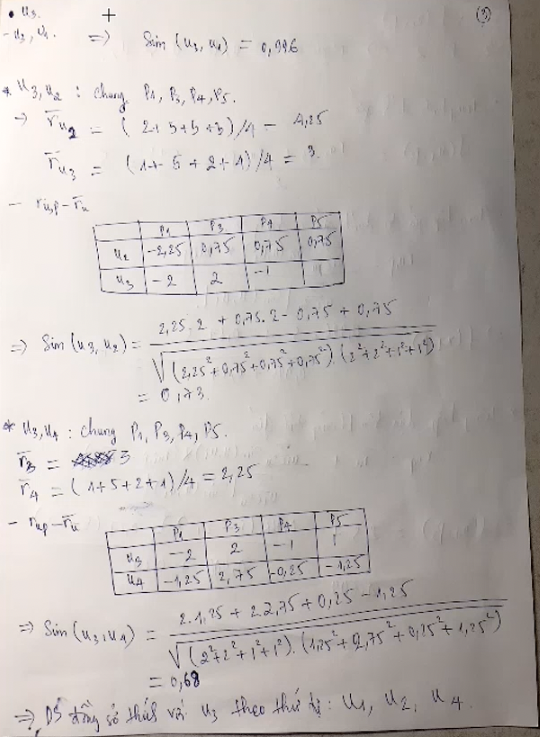 ③
• u3.
- u3, u1. => Sim (u3, u1) = 0,996
* u3, u2 : chung P1, P3, P4, P5.
=> r̄u2 = (2+5+5+5)/4 = 4,25
r̄u3 = (1+5+2+4)/4 = 3.
- rup - r̄u
P1 P3 P4 P5
u2 -2,25 0,75 0,75 0,75
u3 -2 2 -1 1
=> Sim (u3, u2) = 2,25.2 + 0,75.2 - 0,75 + 0,75
√(2,25²+0,75²+0,75²+0,75²).(2²+2²+1²+1²)
= 0,73.
* u3, u4 : chung P1, P3, P4, P5.
r̄3 = 3
r̄4 = (1+5+2+1)/4 = 2,25
- rup - r̄u
P1 P3 P4 P5
u3 -2 2 -1 1
u4 -1,25 2,75 -0,25 -1,25
=> Sim (u3, u4) = 2.1,25 + 2.2,75 + 0,25 - 1,25
√(2²+2²+1²+1²).(1,25²+2,75²+0,25²+1,25²)
= 0,68
=> DS đồng sở thích với u3 theo thứ tự: u1, u2, u4.